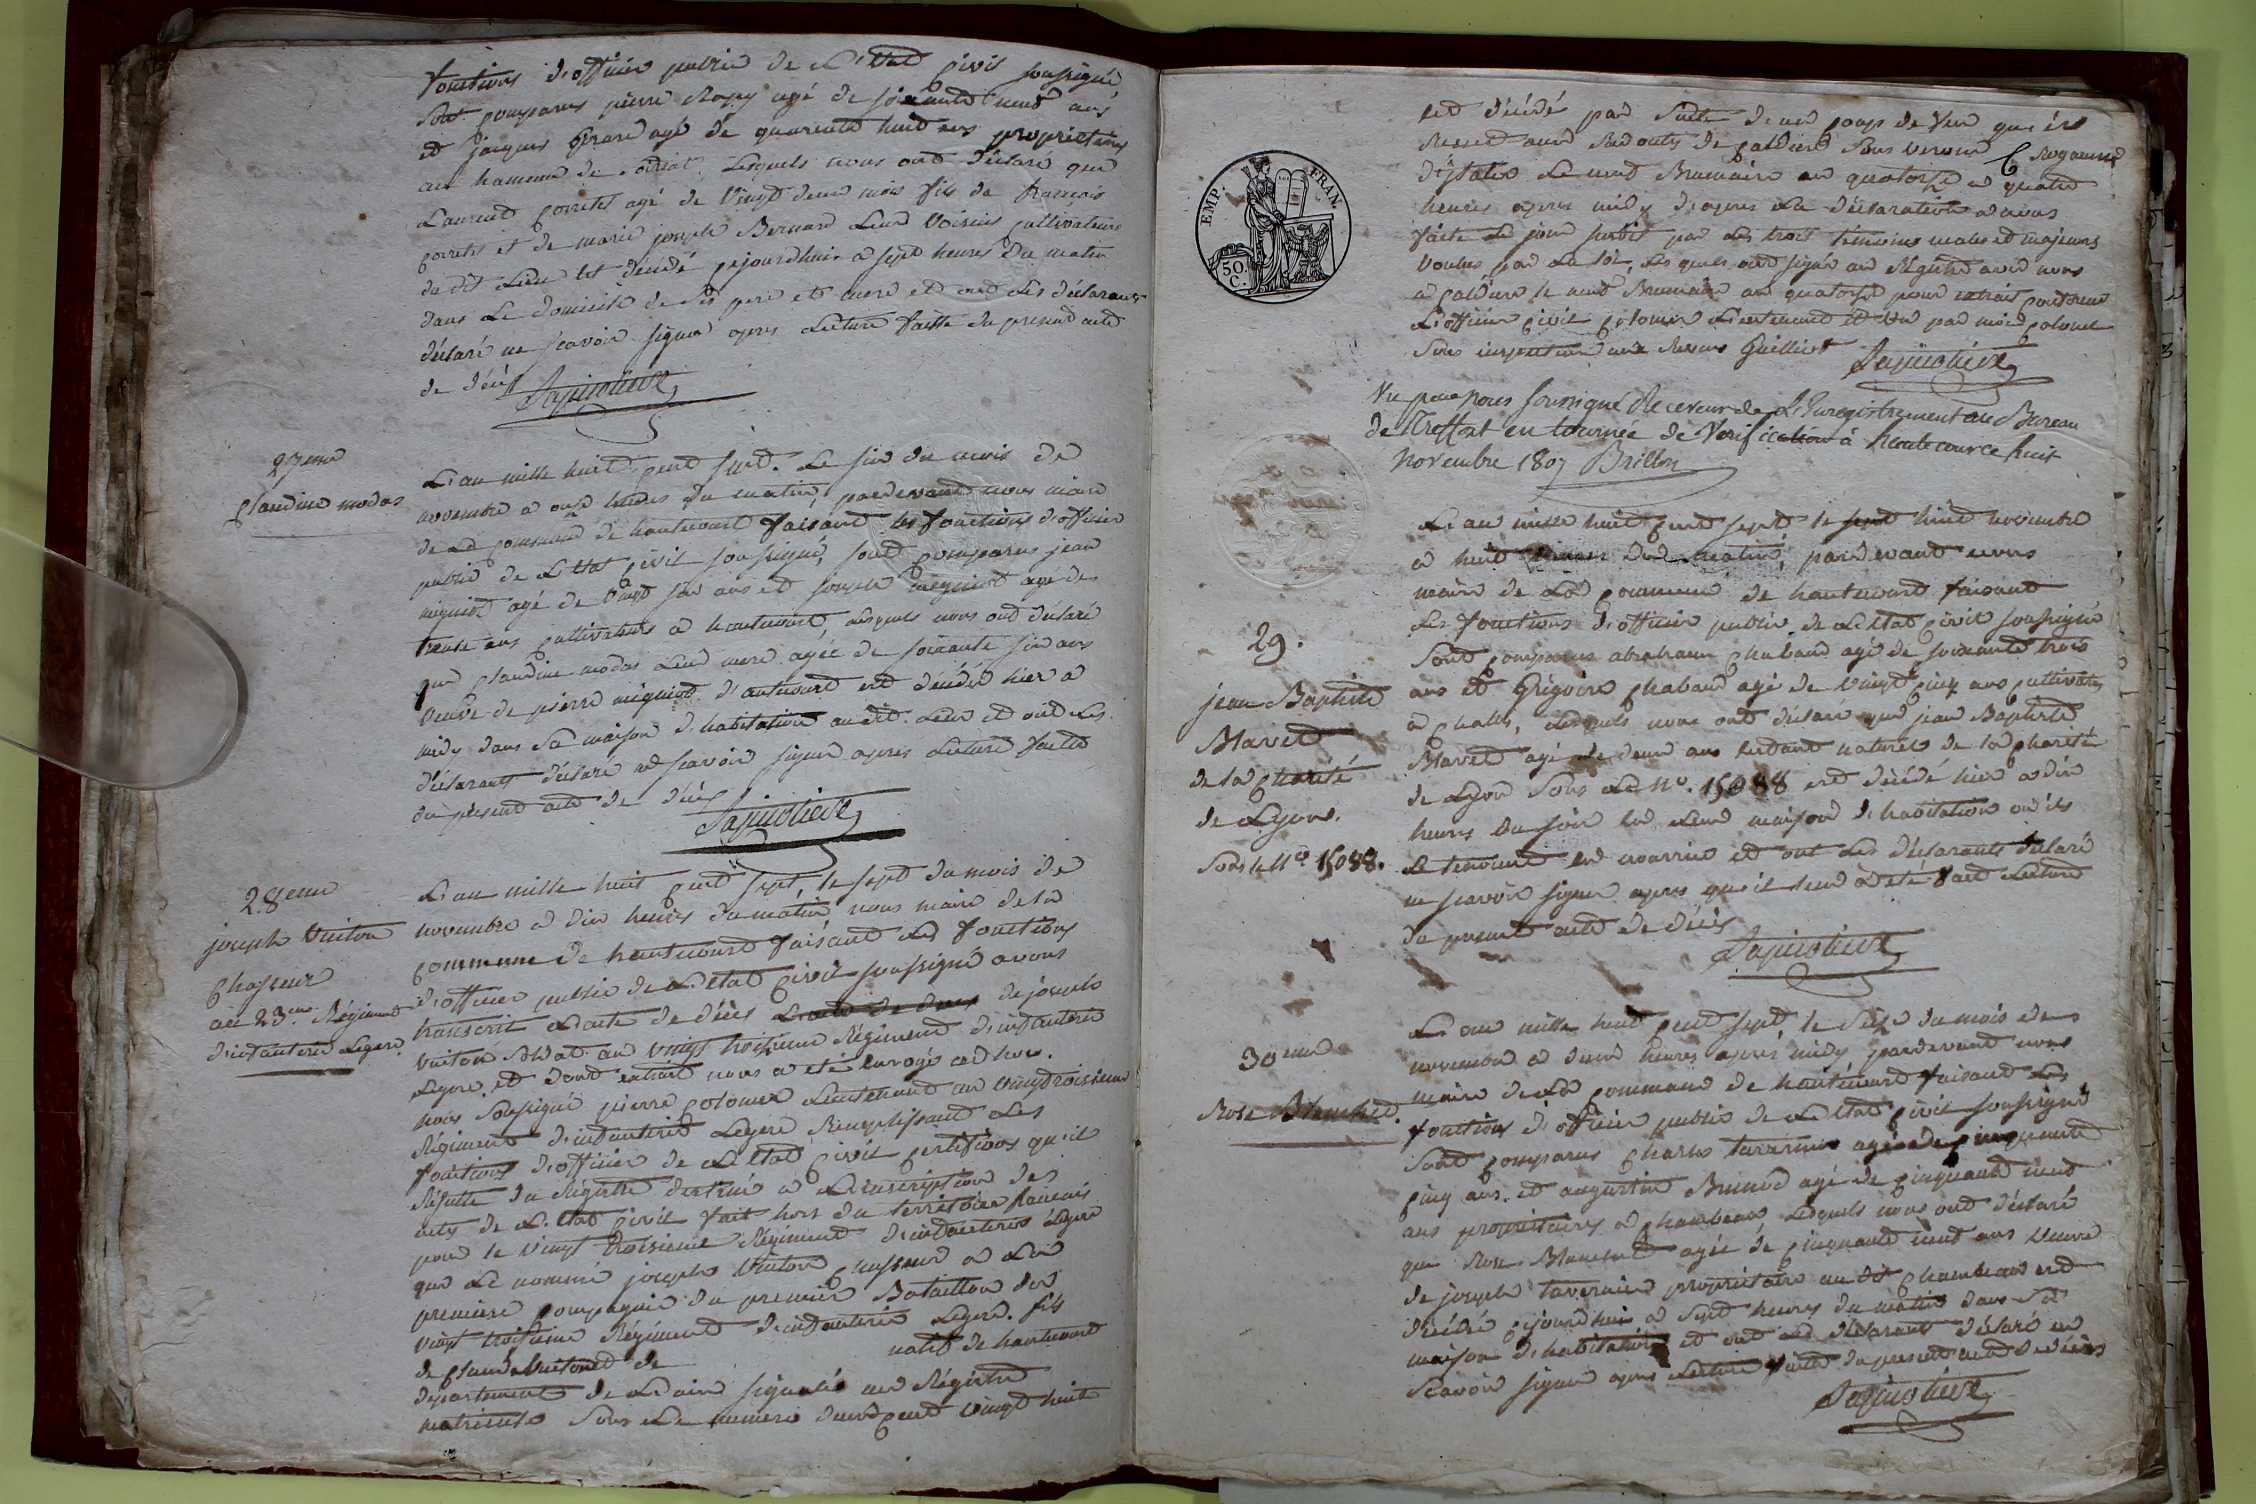 fonctions d'officier public de l'Etat civil soussigné,
sont comparus pierre agé de soixante neuf ans
et jacques agé de quarente huit ans propriétaires
au hameau de lesquels nous ont déclaré que
Laurent agé de vingt deux mois fils de francois
et de marie joseph Bernard leur voisins cultivateurs
du dit lieu est décédé cejourdhui a sept heures du matin
dans le domicile de ses pere et mere et ont les déclarants
déclaré ne scavoir signer apres lecture faitte du present acte
de décès
27eme
Claudine modas
L'an mille huit cent sept. Le six du mois de
novembre a onze heures du matin, pardevant nous maire
de la commune de hautecourt faisant les fonctions d'officier
public de l'Etat civil soussigné, sont comparus jean
migniot agé de vingt six ans et joseph migniot agé de
trente ans cultivateurs a hautecourt, lesquels nous ont déclaré
que claudine modas leur mere agée de soixante six ans
veuve de pierre migniot d'autecourt est décédée hier a
midy dans sa maison d'habitation audit lieu et ont les
déclarants déclaré ne scavoir signer apres lecture faitte
du présent acte de décès
28eme
joseph Vuiton
Chasseur
au 23me Régiment
d'infanterie Legere.
L'an mille huit cent sept, le sept du mois de
novembre a dix heures du matin nous maire de la
commune de hautecourt faisant les fonctions
d'officier public de l'Etat civil soussigné avons
transcrit l'acte de décès L'acte de décès de joseph
Vuiton soldat au vingt troisieme Régiment d'infanterie
Legere et dont extrait nous a eté envoyé
nous soussigné pierre colomer Lieutenant au vingttroisieme
Régiment d'infanterie Legere Remplissant Les
fonctions d'officier de L'Etat civil certifions qu'il
Résulte du Régistre destiné a L'inscription des
actes de L'Etat civil fait hors du territoire francais
pour le vingt troisieme Régiment d'infanterie Légere
que le nommé joseph Vuiton chasseur a la
premiere compagnie du premier Bataillon du
vingt troisieme Régiment d'infanterie Legere. fils
de claude et de natif de hautecourt
département de L'ain signalé au Régistre
matricule sous Le numero deux cent vingt huit
EMP. FRAN.
50.
C.
est décédé par suite d'un coup de feu qu'il
Recut aux Redoutes de caldiero sous verone Royaume
d'jtalie Le neuf Brumaire an quatorze a quatre
heures apres midy d'apres La déclaration a nous
faite le jour susdit par les trois témoins males et majeurs
voulus par La loi, lesquels ont signé au Régistre avec nous
a caldiero le neuf Brumaire an quatorze pour extrait conforme
L'officier civil colomer Lieutenant et vu par moi colonel
Sous inspecteur aux Revues
Vu par nous soussigné Receveur de L'Enregistrement au Bureau
de Treffort en tournée de Verification à hautecour ce huit
Novembre 1807 Brillon
29.
jean Baptiste
Mavet
de la Charité
de Lyon.
Sous le No 15088.
L'an mille huit cent sept le sept huit novembre
a huit heures du matin, pardevant nous
maire de La commune de hautecourt faisant
Les fonctions d'officier public de L'Etat civil soussigné
Sont comparus abraham chaband agé de soixante trois
ans et Grégoire chaband agé de vingt cinq ans cultivateurs
a challes, lesquels nous ont déclaré que jean Baptiste
Mavet agé de deux ans enfant naturel de la charité
de Lyon sous Le No. 15088 est décédé hier a dix
heures du soir en leur maison d'habitation ou ils
Le tenoient en nourrice et ont les déclarants déclaré
ne scavoir signer apres qu'il leur a eté fait Lecture
du present acte de décès
30eme
Rose Blanchet.
L'an mille huit cent sept, le seize du mois de
novembre a deux heures apres midy, pardevant nous
maire de La commune de hautecourt faisant Les
fonctions d'officier public de L'Etat civil soussigné
Sont comparus charles tavernier agé de cinquante
cinq ans. et augustin Brunod agé de cinquante neuf
ans propriétaires a chambeau, lesquels nous ont déclaré
que Rose Blanchet agée de cinquante neuf ans veuve
de joseph tavernier propriétaire au dit chambeau est
décédée cejourdhui a sept heures du matin dans sa
maison d'habitation et ont les déclarants déclaré ne
scavoir signer apres Lecture faitte du present acte de décès